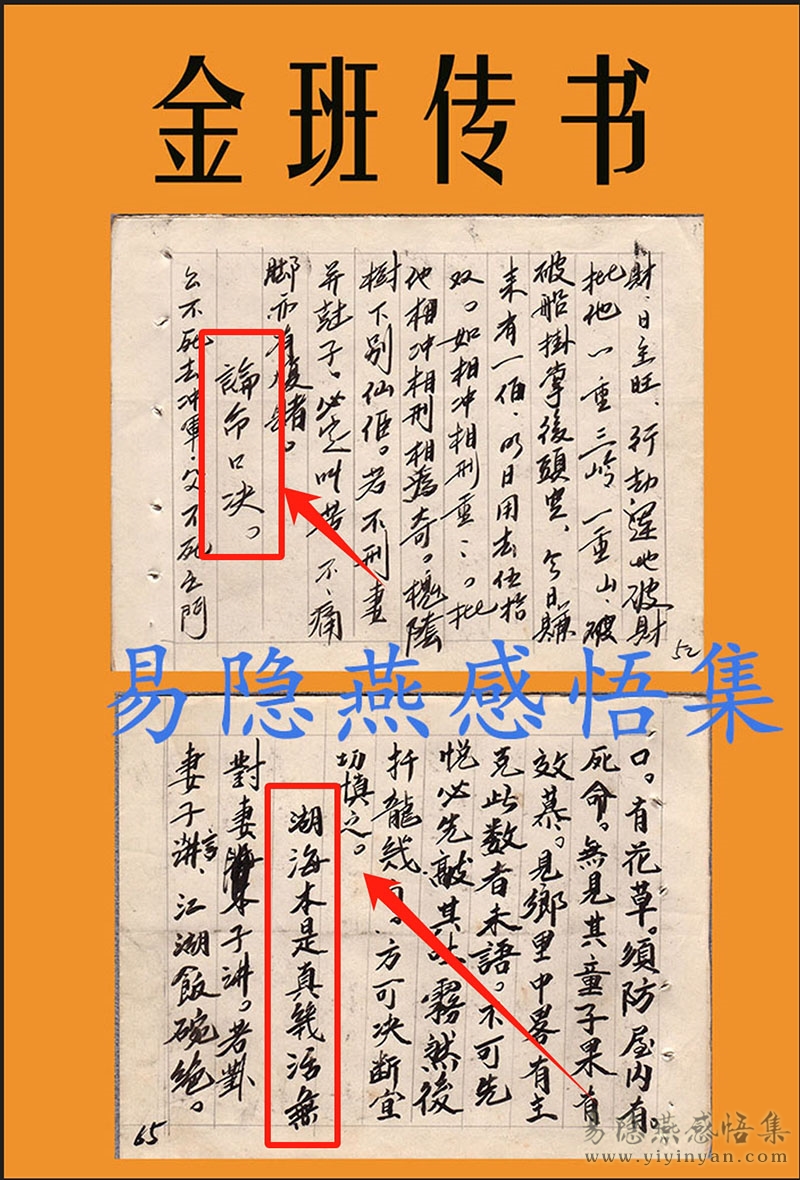 金班传书
財、日主旺、行劫運也破財
批他八重三峇一重山、破
破船掛掌後頭里、今日賺
来有一佰、明日用去伍拾
双。如相冲相刑重：。批
他相冲相刑相為奇。槐陰
樹下别仙佢。若不刑妻
并尅子。必定叫苦不痛
脚亦有
論命口决。
公不死去冲軍、父不死
52
易隐燕感悟集
口。有花草。須防屋内有。
死命。無見其童子果有
效慕。見鄉里中畧有主
克此数者未語。不可先
悦必先敲其吐霧然後
扦龍幾 方可决断宜
切慎之。
湖海本是真幾活無
對妻 子讲。若對
妻子讲言、江湖飯碗絶。
65
易隐燕感悟集
www.yiyinyan.com